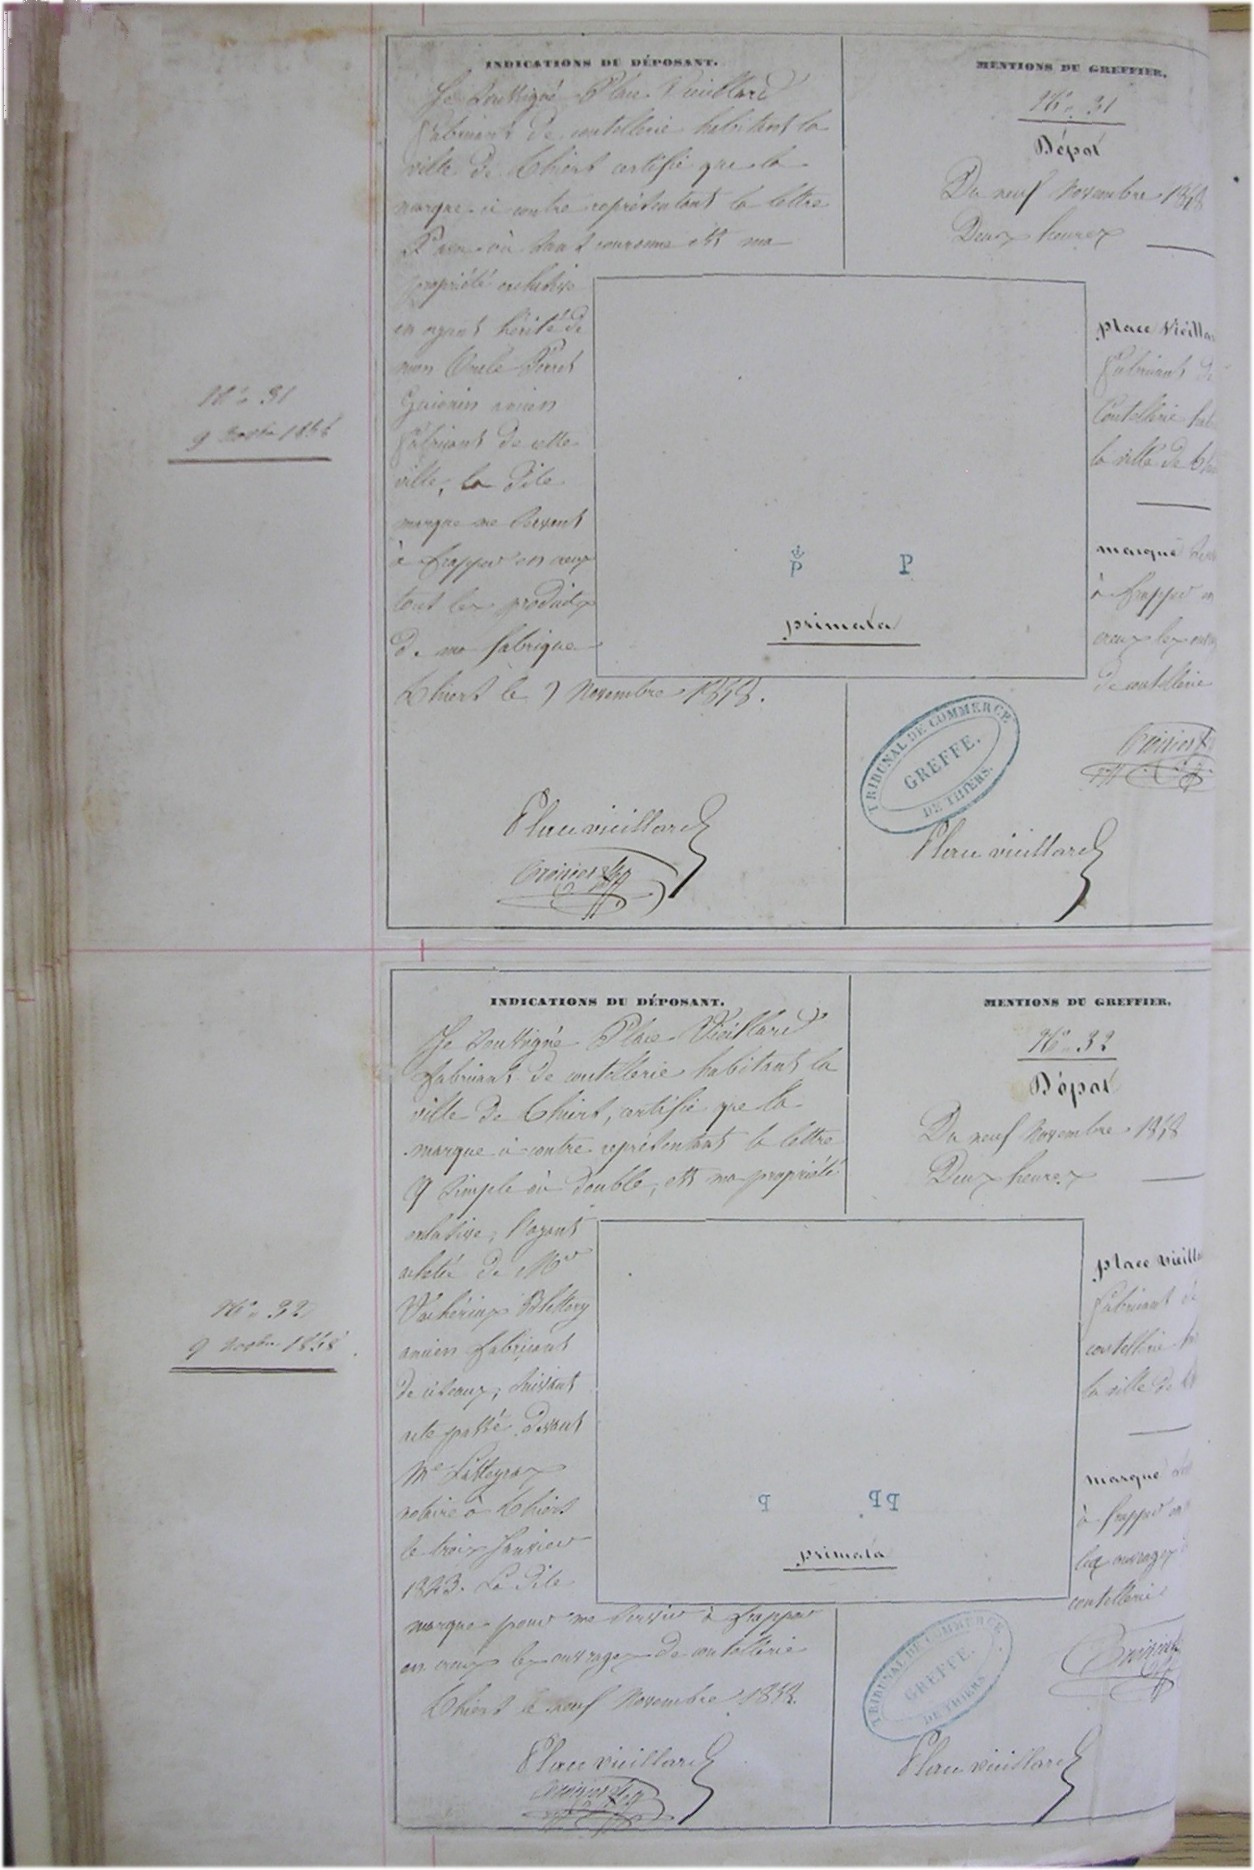 INDICATIONS DU DÉPOSANT.
Je soussigné Place Vieillard
fabricant de coutellerie habitant la
ville de Thiers certifie que la
marque ci contre représentant la lettre
P avec ou sans couronne est ma
propriété exclusive
en ayant hérité de
mon Oncle Perret
ancien
fabricant de cette
ville, la dite
marque me servant
à frapper en creux
tout les produits
de ma fabrique
Thiers le 9 Novembre 1858.
Place vieillard
MENTIONS DU GREFFIER.
No. 31
Dépot
Du neuf Novembre 1858
Deux heures
place Vieilla
fabricant de
Coutellerie hab
la ville de Thi
marque
à frapper en
creux les ouv
de coutellerie
P P
primata
TRIBUNAL DE COMMERCE
GREFFE.
DE THIERS.
Place vieillard
No. 31
9 Novbre 1858
INDICATIONS DU DÉPOSANT.
Je soussigné Place Vieillard
fabricant de coutellerie habitant la
ville de Thiers, certifie que la
marque ci contre représentant la lettre
q simple ou double, est ma propriété
exclusive, l'ayant
achetée de Mr
ancien fabricant
de ciseaux, suivant
acte passé devant
Me
notaire à Thiers
le trois Janvier
1843. La dite
marque pour me servir à frapper
en creux les ouvrages de coutellerie
Thiers le neuf Novembre 1858.
Place vieillard
MENTIONS DU GREFFIER.
No. 32
Dépot
Du neuf Novembre 1858
Deux heures
place vieilla
fabricant de
coutellerie ha
la ville de
marque
à frapper en
les ouvrages
coutellerie
q qq
primata
TRIBUNAL DE COMMERCE
GREFFE.
DE THIERS
Place vieillard
No. 32
9 Novbre 1858.